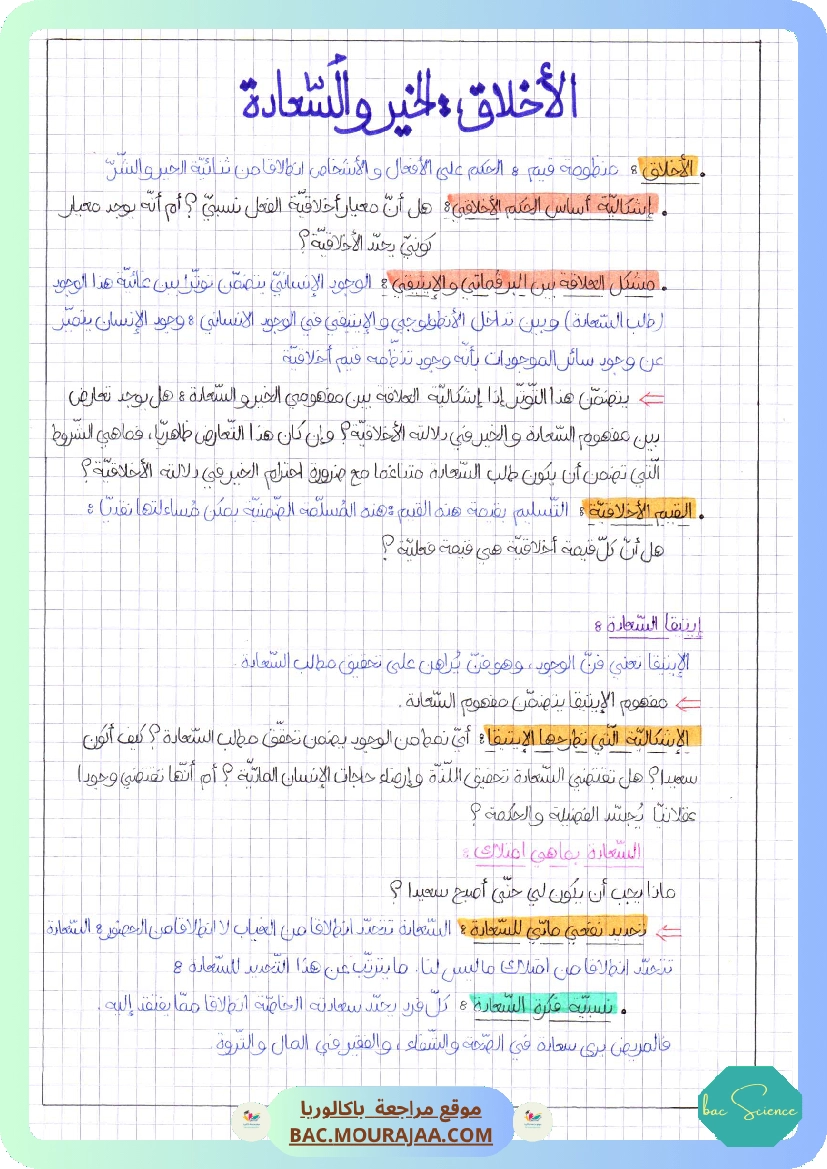 الأخلاق: الخير والسّعادة
. الأخلاق: منظومة قيم: الحكم على الأفعال والأشخاص انطلاقا من ثنائيّة الخير والشّرّ
. إشكاليّة أساس الحكم الأخلاقي: هل أنّ معيار أخلاقيّة الفعل نسبيّ؟ أم أنّه يوجد معيار
كونيّ يحدّد الأخلاقيّة؟
. مشكل العلاقة بين البرقماتي والإيتيقي: الوجود الإنسانيّ يتضمّن توتّرا بين غائيّة هذا الوجود
(طلب السّعادة) وبين تداخل الأنطولوجي والإيتيقي في الوجود الانساني: وجود الإنسان يتميّز
عن وجود سائر الموجودات بأنّه وجود تنظّمه قيم أخلاقيّة
⇐ يتضمّن هذا التّوتّر إذا إشكاليّة العلاقة بين مفهومي الخير والسّعادة: هل يوجد تعارض
بين مفهوم السّعادة والخير في دلالته الأخلاقيّة؟ وإن كان هذا التّعارض ظاهريّا، فماهي الشّروط
الّتي تضمن أن يكون طلب السّعادة متناغما مع ضرورة احترام الخير في دلالته الأخلاقيّة؟
. القيم الأخلاقيّة: التّسليم بقيمة هذه القيم: هذه المُسلّمة الضّمنيّة يمكن مُساءلتها نقديّا:
هل أنّ كلّ قيمة أخلاقيّة هي قيمة فعليّة؟
إيتيقا السّعادة:
الإيتيقا تعني فنّ الوجود، وهو فنّ يُراهن على تحقيق مطلب السّعادة.
⇐ مفهوم الإيتيقا يتضمّن مفهوم السّعادة.
الإشكاليّة الّتي تطرحها الإيتيقا: أيّ نمط من الوجود يضمن تحقّق مطلب السّعادة؟ كيف أكون
سعيدا؟ هل تقتضي السّعادة تحقيق اللّذّة وإرضاء حاجات الإنسان الماديّة؟ أم أنّها تقتضي وجودا
عقلانيّا يُجسّد الفضيلة والحكمة؟
السّعادة بماهي امتلاك:
ماذا يجب أن يكون لي حتّى أصبح سعيدا؟
⇐ تحديد نفعي ماديّ للسّعادة: السّعادة تتحدّد انطلاقا من الغياب لا انطلاقا من الحضور: السّعادة
تتحدّد انطلاقا من امتلاك ماليس لنا. ما يترتّب عن هذا التّحديد للسّعادة:
. نسبيّة فكرة السّعادة: كلّ فرد يحدّد سعادته الخاصّة انطلاقا ممّا يفتقد إليه.
فالمريض يرى سعادة في الصّحّة والشّفاء، والفقير في المال والثّروة
موقع مراجعة باكالوريا
BAC.MOURAJAA.COM
bac Science